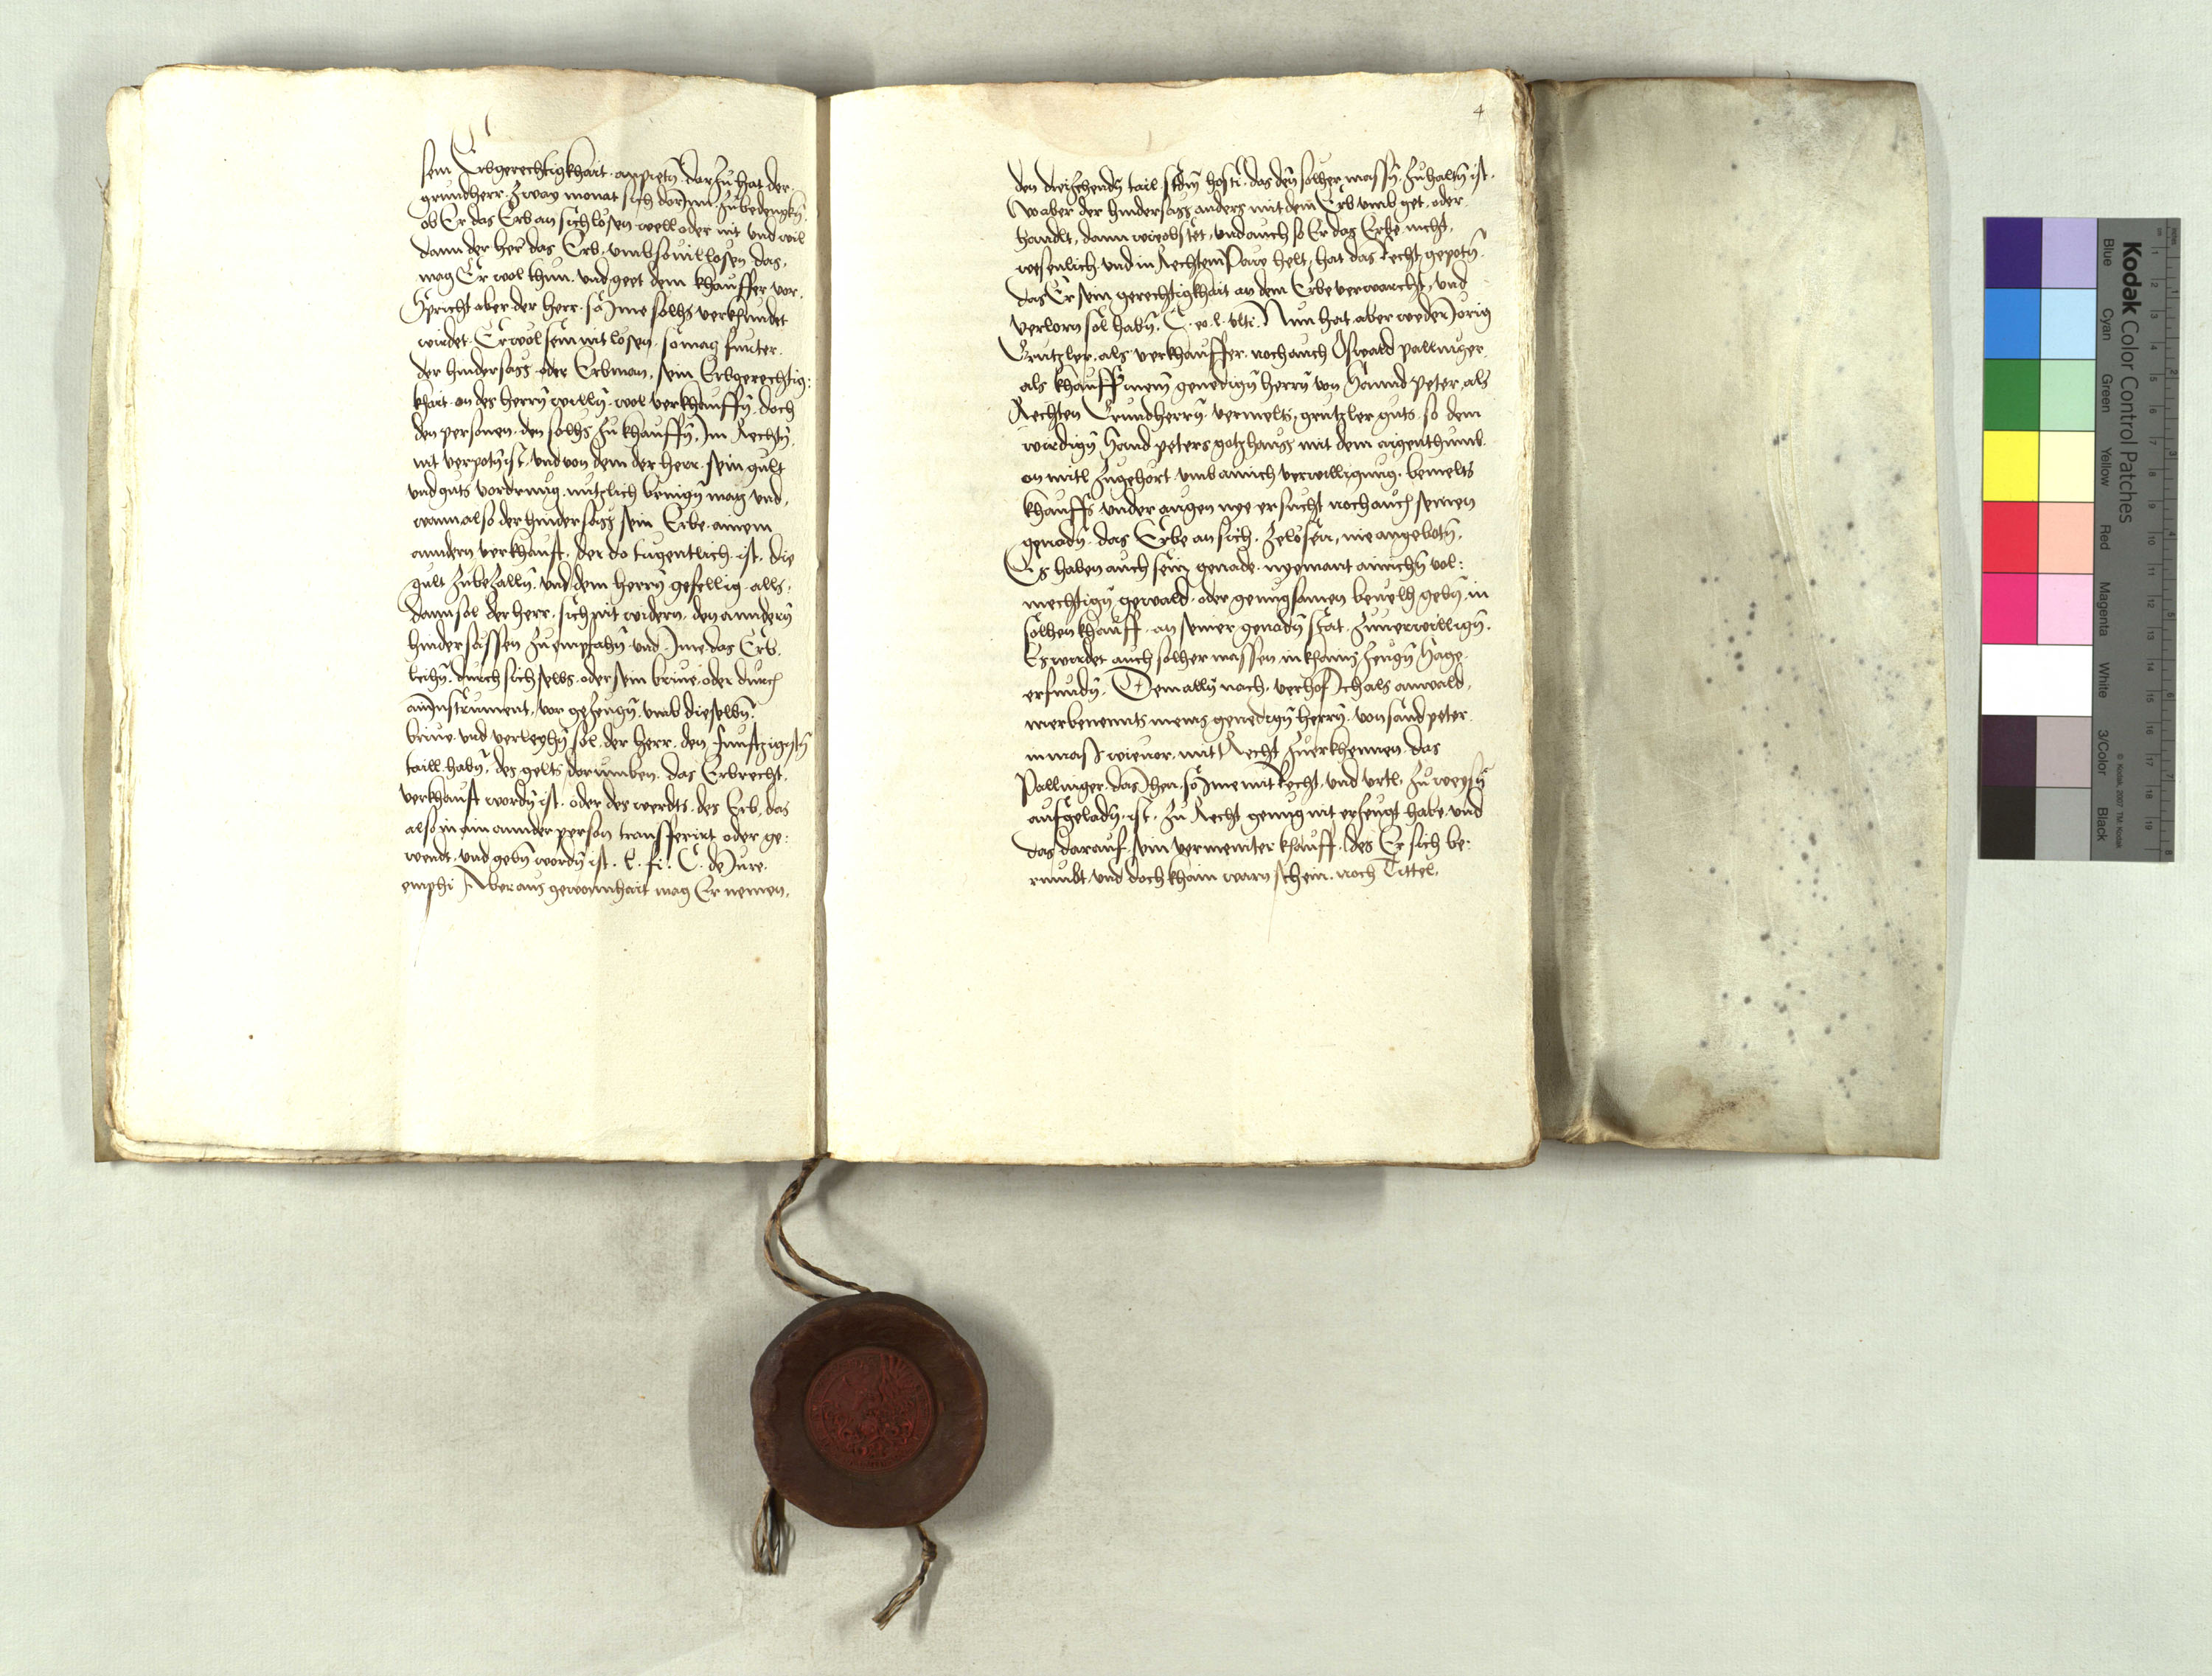 sein Erbgerechtigkhait. anpietn̄. dar Zu hat der.
grundherr. Zway monat sich dorJnn. Zubedengkn̄.
ob Er das Erb an sich lösen well oder nit vnd wil
dann der herr das Erb. vmb souil losen das.
mag Er wol thun. vnd geet dem khauffer vor.
Spricht aber der herr. so Jme solhs verkhundet
wirdet. Er wol sein nit losen. so mag furter.
der hindersäss oder Erbman. sein Erbgerechtig:
khait. on des herrn̄ willn̄. wol verkhauffn̄. doch
den personen. den solhs Zu khauffn̄. Jm Rechtn̄.
nit verpotn̄ ist. vnd von dem der herr. sein gult
vnd guts vordrung. nutzlich benugn̄ mag vnd.
wann also der hindersäss sein Erbe. ainem
anndern verkhauft. der do tugentlich ist. die
gult Zubezalln̄. vnd dem herrn̄ gefellig. alls.
dann sol der herr. sich nit widern. den anndern̄
hindersässen Zu empfahn̄ vnd Jme das Erb.
leihn̄. durch sich selbs. oder sein briue. oder durch
ain Jnstrument. vor geZeugn̄. vmb dieselbn̄.
briue. vnd verleyhn̄ sol. der herr. den funftzigistn̄
taill habn̄. des gelts dorumben. das Erbrecht.
verkhauft wordn̄ ist. oder des werdts. des Erb. das
also in ain annder person transferirt oder ge:
wendt. vnd gebn̄ wordn̄ ist. l. fi. C. de Jure.
emphi Aber aus gewonnhait mag Er nemen.
4
den dreiZehendn̄ tail. scdm̄ hosti. das den solher massn̄. Zuhaltn̄ ist.
Wo aber der hindersass anders mit dem Erb vmb get. oder
handlt. dann wieobstet. vnd auch so Er das Erbe. nicht.
wesenlich vnd in Rechtem Paue helt, hat das Recht gepotn̄.
das Er sein gerechtigkhait an dem Erbe verwürcht. vnd
verlorn sol habn̄. C. eo. l. vlti. Nun hat aber weder Jorig
Grutzler. als verkhauffer. noch auch Oswald pallinger.
als khauffer meinem genedign̄ herrn̄ von Sannd peter. als
Rechten Grundherrn̄. vermelts. grutzler guts. so dem
wirdign̄ Sand peters gotzhauss mit dem aigenthumb.
on mitl Zugehort. vmb ainich verwilligung. bemelts
khauffs vnder augen nye ersucht noch auch seinen
genadn̄. das Erbe an sich. Zelösen, nie angebotn̄.
Es haben auch sein genade. nyemant ainichn̄ vol:
mechtign̄ gewald. oder genugsamen beuelh gebn̄. in
solhen khauff. an seiner genadn̄ stat. Zuuerwillign̄.
Es wirdet auch solher massen. in khains Zeugn̄ Sage.
erfundn̄. Dem alln̄ nach. verhof Ich als anwald.
merbenennts meins genedign̄ herrn̄. von sand peter.
inmass wieuor. mit Recht Zuerkhennen. das
Pallinger. das Jhen. so Jme mit Recht. vnd vrtl. Zuweysn̄
aufgeladn̄. ist. Zu Recht genug nit erZeugt habe. vnd
das darauf. sein vermeinter khauff. des Er sich be:
rumbt. vnd doch khain warn schein. noch Tittel.
Kodak Color Control Patches
© Kodak, 2007 TM: Kodak
Blue
Cyan
Green
Yellow
Red
Magenta
White
3/Color
Black